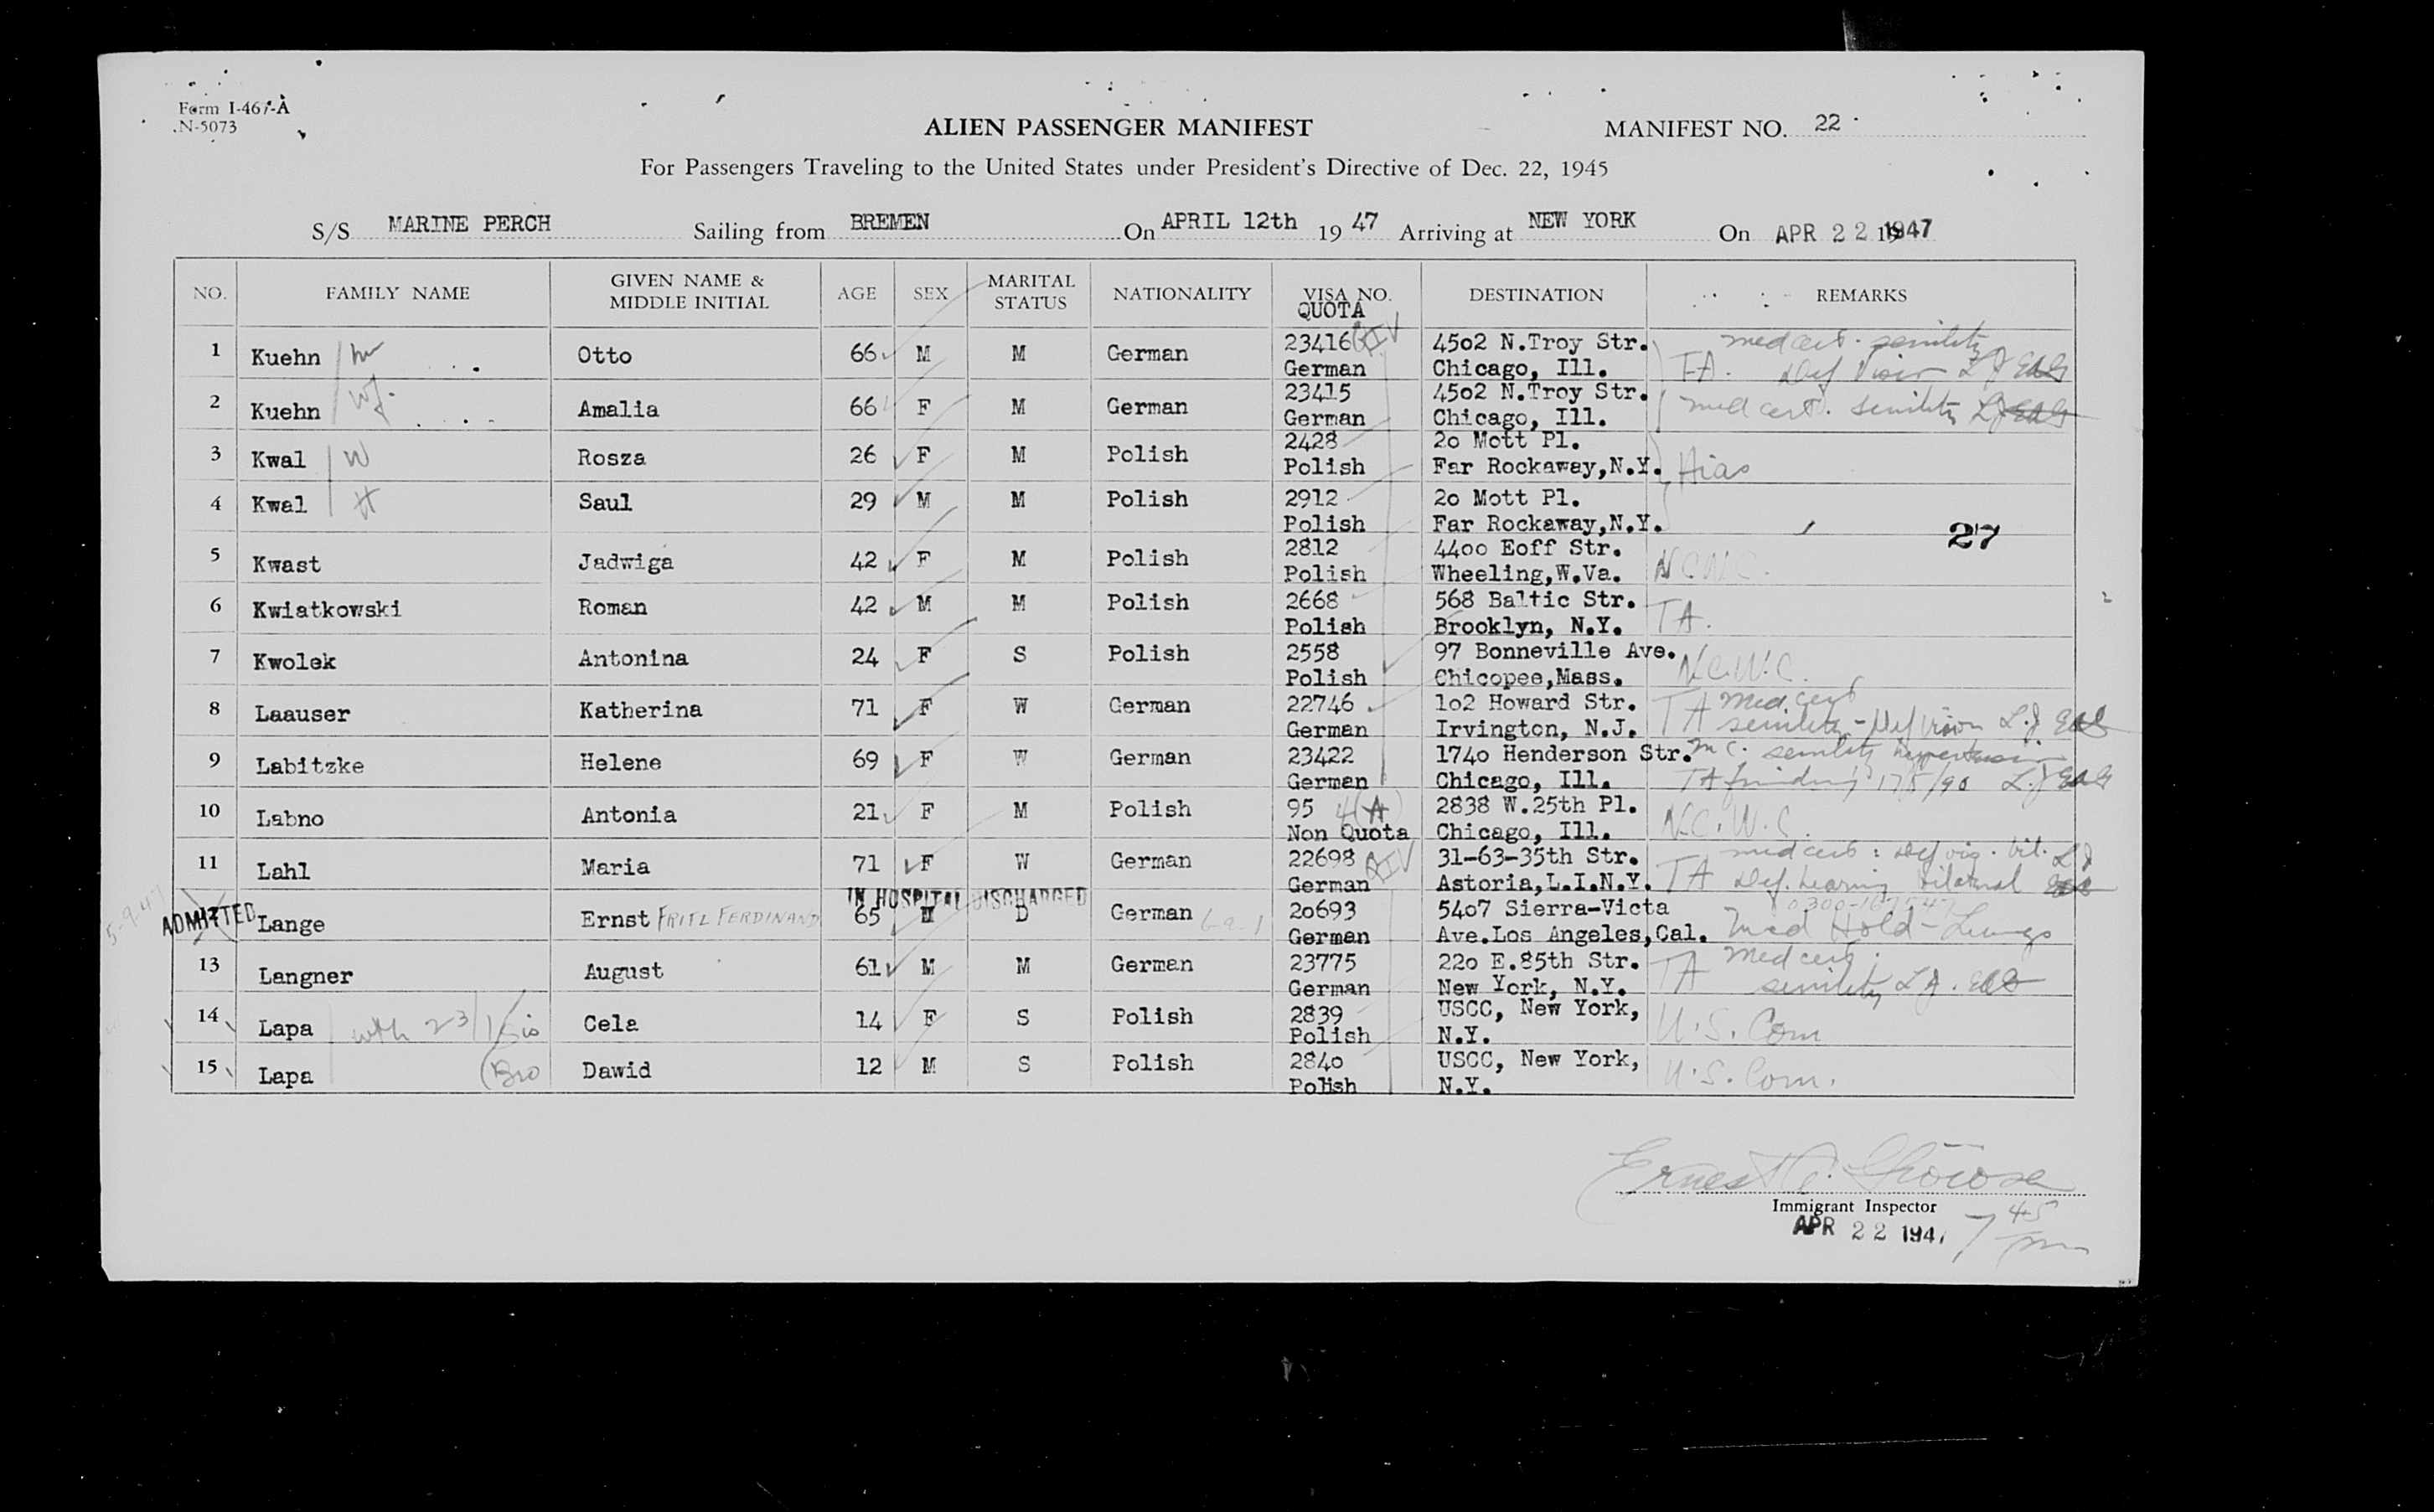 Form I-467-A
N-5073
ALIEN PASSENGER MANIFEST
MANIFEST NO. 22
For Passengers Traveling to the United States under President's Directive of Dec. 22, 1945
S/S MARINE PERCH Sailing from BREMEN On APRIL 12th 19 47 Arriving at NEW YORK On APR 22 1947
NO. FAMILY NAME GIVEN NAME & MIDDLE INITIAL AGE SEX MARITAL STATUS NATIONALITY VISA NO. QUOTA DESTINATION REMARKS
1 Kuehn Otto 66 M M German 23416 4502 N.Troy Str. med cert. senility
German Chicago, Ill. TA. Def Vision
2 Kuehn wf. Amalia 66 F M German 23415 4502 N.Troy Str.
German Chicago, Ill. med cert. senility
3 Kwal W Rosza 26 F M Polish 2428 20 Mott Pl.
Polish Far Rockaway,N.Y. Hias
4 Kwal H Saul 29 M M Polish 2912 20 Mott Pl.
Polish Far Rockaway,N.Y. 27
5 Kwast Jadwiga 42 F M Polish 2812 4400 Eoff Str.
Polish Wheeling,W.Va. NCWC.
6 Kwiatkowski Roman 42 M M Polish 2668 568 Baltic Str.
Polish Brooklyn, N.Y. TA.
7 Kwolek Antonina 24 F S Polish 2558 97 Bonneville Ave.
Polish Chicopee,Mass. N.C.W.C.
8 Laauser Katherina 71 F W German 22746 102 Howard Str. TA Med. cert
German Irvington, N.J. senility - Def vision
9 Labitzke Helene 69 F W German 23422 1740 Henderson Str. m c. senility hypertension
German Chicago, Ill. TA 175/90
10 Labno Antonia 21 F M Polish 95 4(A) 2838 W.25th Pl.
Non Quota Chicago, Ill. N.C.W.C.
11 Lahl Maria 71 F W German 22698 31-63-35th Str. med cert: Def vis. bil.
German Astoria,L.I.N.Y. TA Def. hearing bilateral
IN HOSPITAL DISCHARGED
5-9-47
ADMITTED Lange Ernst FRITZ FERDINAND 65 M D German 20693 5407 Sierra-Victa
German Ave.Los Angeles,Cal. Med Hold - Lungs
13 Langner August 61 M M German 23775 220 E.85th Str. TA Med cert.
German New York, N.Y. senility
14 Lapa with 23/1 Sis Cela 14 F S Polish 2839 USCC, New York,
Polish N.Y. U.S. Com
15 Lapa (Bro Dawid 12 M S Polish 2840 USCC, New York,
Polish N.Y. U.S. Com.
Immigrant Inspector
APR 22 1947 7 45 pm